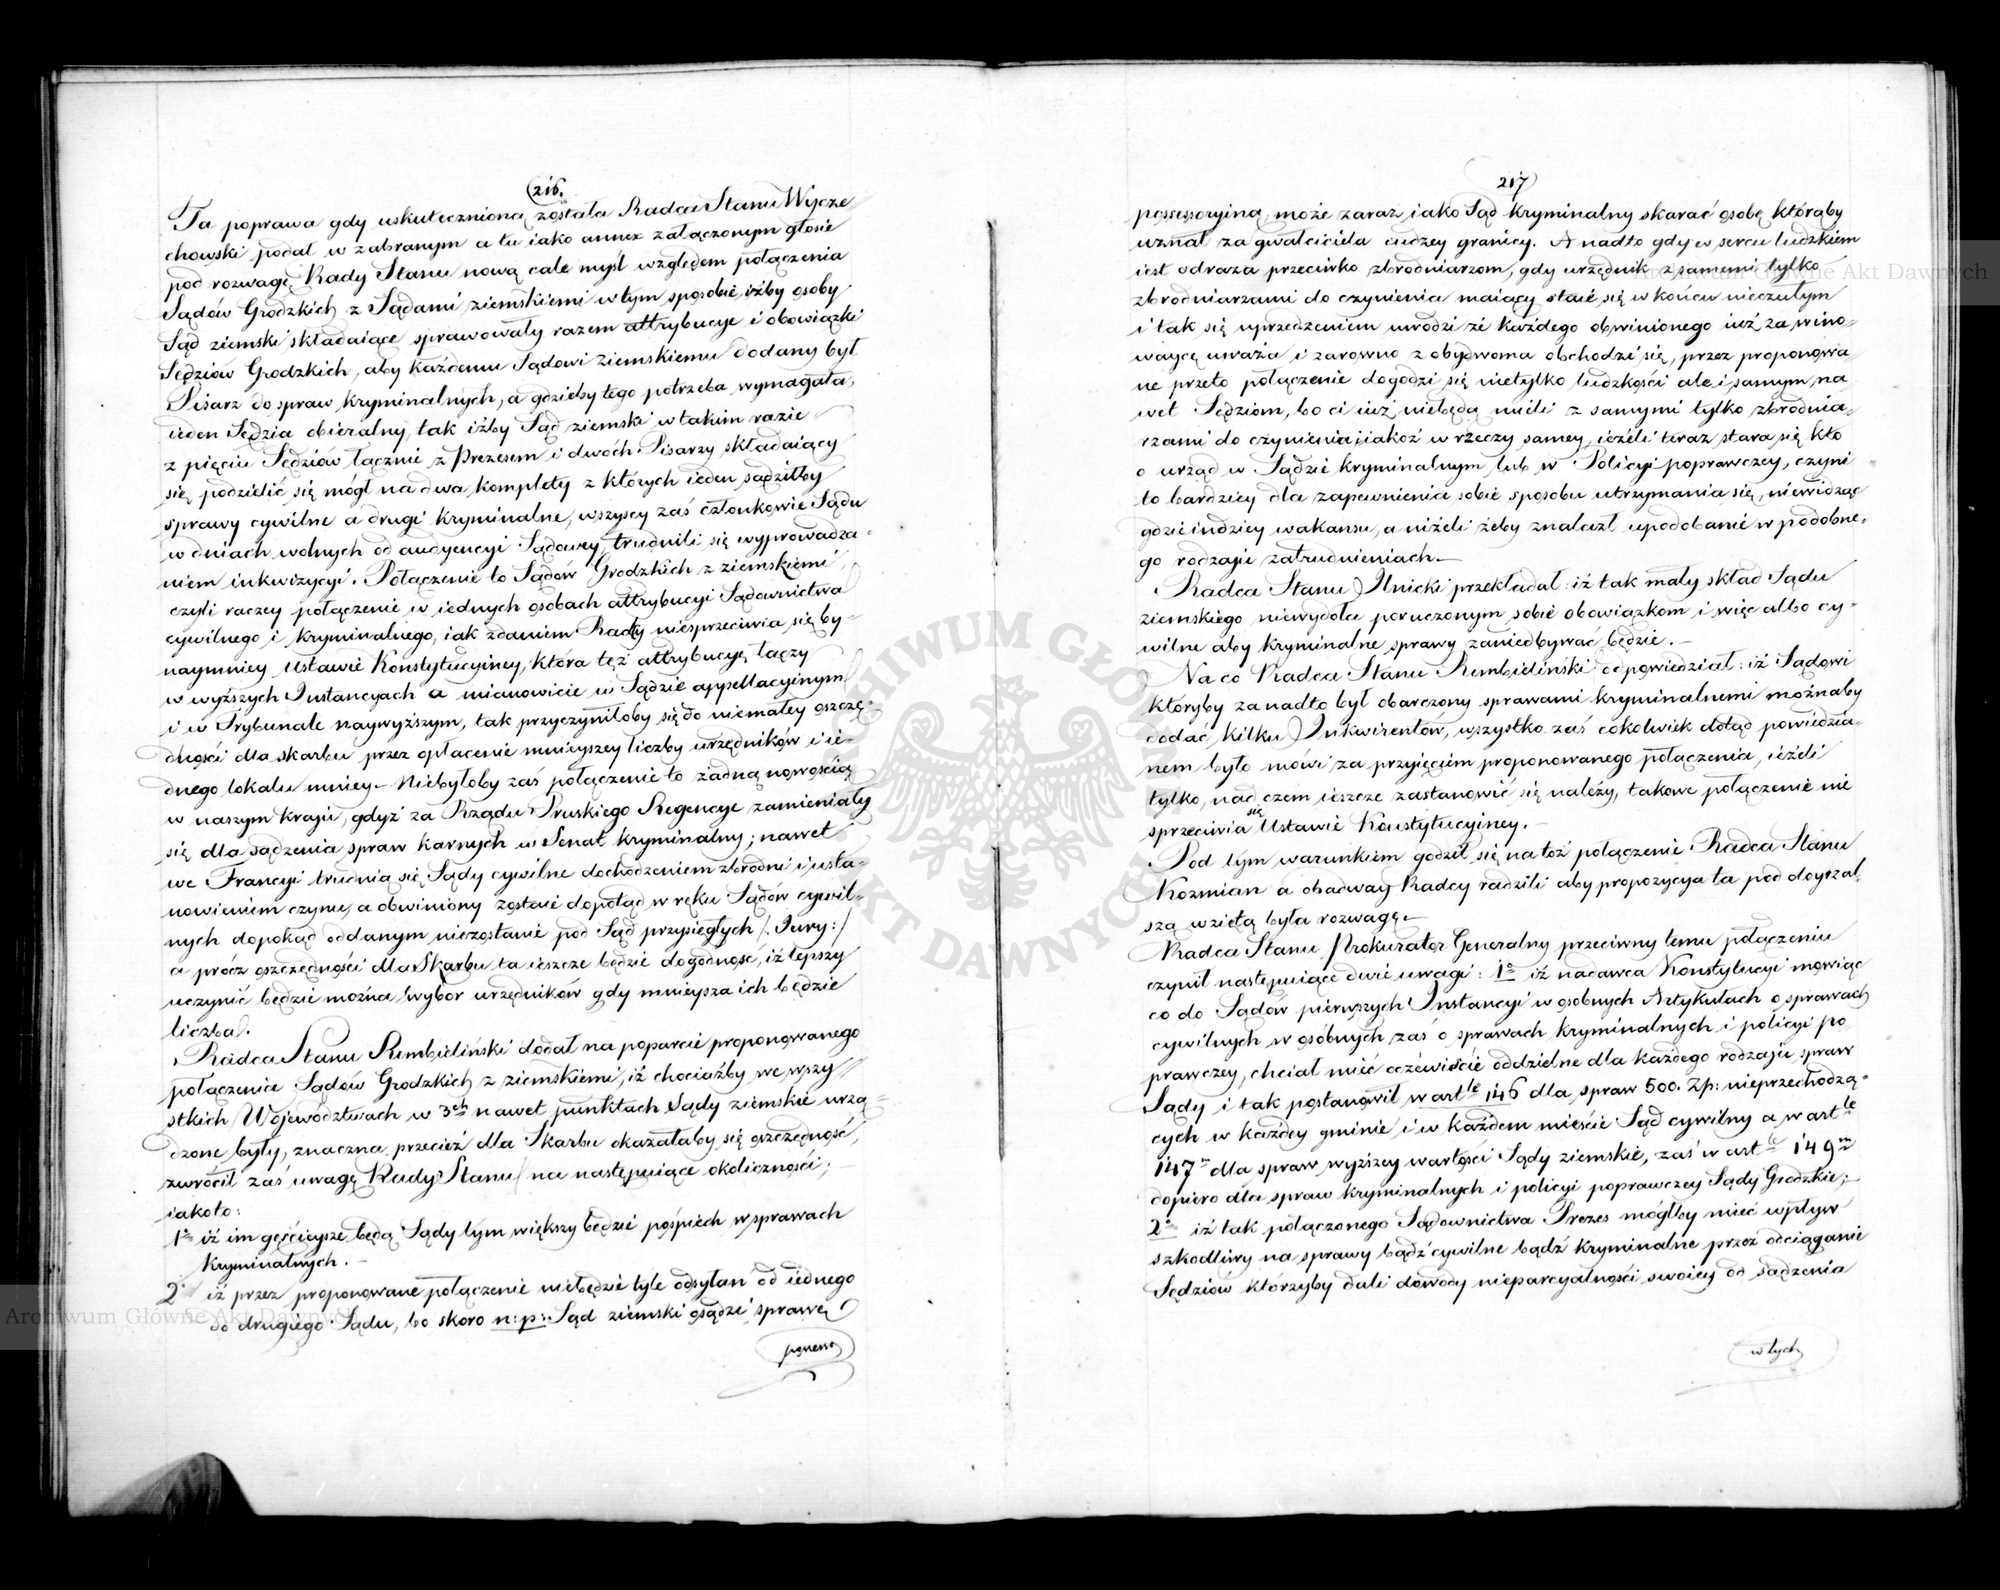 216.
Ta poprawa gdy uskuteczniona została Radca Stanu Wycze
chowski podał w zabranym a tu iako annex załączonym głosie
pod rozwagę Rady Stanu nową całe myśl względem połączenia
Sądów Grodzkich z Sądami ziemskiemi w tym sposobie, iżby osoby
Sąd ziemski składaiące sprawowały razem attrybucye i obowiązki
Sędziów Grodzkich, aby każdemu Sądowi ziemskiemu dodany był
Pisarz do spraw kryminalnych, a gdzieby tego potrzeba wymagała,
ieden Sędzia obieralny, tak iżby Sąd ziemski w takim razie
z pięciu Sędziów łącznie z Prezesem i dwóch Pisarzy składaiący
się podzielić się mógł na dwa komplety z których ieden sądziłby
sprawy cywilne a drugi kryminalne, wszyscy zaś członkowie Sądu
w dniach wolnych od audyencyi Sądowey, trudnili się wyprowadza-
niem inkwizycyi. Połączenie to Sądów Grodzkich z ziemskiemi,
czyli raczey połączenie w iednych osobach attrybucyi Sądownictwa
cywilnego i kryminalnego, iak zdaniem Rady niesprzeciwia się by-
naymniey Ustawie Konstytucyiney, która też attrybucye łączy
w wyższych Instancyach a mianowicie w Sądzie appellacyinym
i w Trybunale naywyższym, tak przyczyniłoby się do niemałey oszczę-
dności dla skarbu przez opłacenie mnieyszey liczby urzędników i ie-
dnego lokalu mniey. Niebyłoby zaś połączenie to żadną nowością
w naszym kraju, gdyż za Rządu Pruskiego Regencye zamieniały
się dla sądzenia spraw karnych w Senat kryminalny; nawet
we Francyi trudnią się Sądy cywilne dochodzeniem zbrodni i usta-
nowieniem czynu, a obwiniony zostaie dopotąd w ręku Sądów cywil-
nych dopokąd oddanym niezostanie pod Sąd przysięgłych /: Jury:/
a prócz oszczędności dla Skarbu ta ieszcze będzie dogodność, iż lepszy
uczynić będzie można wybór urzędników gdy mnieysza ich będzie
liczba.
Radca Stanu Rembieliński dodał na poparcie proponowanego
połączenia Sądów Grodzkich z ziemskiemi, iż chociażby we wszy
stkich Województwach w 3ch nawet punktach Sądy ziemskie urzą-
dzone były, znaczna przecież dla Skarbu okazałaby się oszczędność,
zwrócił zaś uwagę Rady Stanu na następuiące okoliczności;
iakoto:
1o iż im gęścieysze będą Sądy tym większy będzie pośpiech w sprawach
kryminalnych. -
2o iż przez proponowane połączenie niebędzie tyle odsyłań od iednego
do drugiego Sądu, bo skoro n: p: Sąd ziemski osądzi sprawę
possess
217
possessoryiną, może zaraz iako Sąd kryminalny skarać osobę którąby
uznał za gwałciciela cudzey granicy. A nadto gdy w sercu ludzkiem
iest odraza przeciwko zbrodniarzom, gdy urzędnik z samemi tylko
zbrodniarzami do czynienia maiący staie się w końcu nieczułym
i tak się uprzedzeniem uwodzi że każdego obwinionego iuż za wino-
waycę uważa i zarówno z obydwoma obchodzi się, przez proponowa
ne przeto połączenie dogodzi się nietylko ludzkości ale i samym na
wet Sędziom, bo ci iuż niebędą mieli z samymi tylko zbrodnia-
rzami do czynienia; iakoż w rzeczy samey, ieżeli teraz stara się kto
o urząd w Sądzie kryminalnym lub w Policyi poprawczey, czyni
to bardziey dla zapewnienia sobie sposobu utrzymania się, niewidząc
gdzieindziey wakansu, a niżeli żeby znalazł upodobanie w podobne-
go rodzaju zatrudnieniach.-
Radca Stanu Ilnicki przekładał: iż tak mały skład Sądu
ziemskiego niewydoła poruczonym sobie obowiązkom i więc albo cy-
wilne aby kryminalne sprawy zaniedbywać będzie. -
Na co Radca Stanu Rembieliński odpowiedział: iż Sądowi
któryby zanadto był obarczony sprawami kryminalnemi możnaby
dodać kilku Inkwirentów, wszystko zaś cokolwiek dotąd powiedzia-
nem było mówi za przyięciem proponowanego połączenia, ieżeli
tylko, nad czem ieszcze zastanowić się należy, takowe połączenie nie
sprzeciwia się Ustawie Konstytucyiney. -
Pod tym warunkiem godził się na toż połączenie Radca Stanu
Koźmian a obadway Radcy radzili aby propozycya ta pod doyrzal-
szą wziętą była rozwagę.-
Radca Stanu Prokurator Generalny przeciwny temu połączeniu
czynił następuiące dwie uwagi: 1o iż nadawca Konstytucyi mówiąc
co do Sądów pierwszych Instancyi w osobnych Artykułach o sprawach
cywilnych w osóbnych zaś o sprawach kryminalnych i policyi po
prawczey, chciał mieć oczewiście oddzielne dla każdego rodzaju spraw
Sądy i tak postanowił w artle 146 dla spraw 500. Zp: nieprzechodzą-
cych w każdey gminie i w każdem mieście Sąd cywilny a w artle
147m dla spraw wyższey wartości Sądy ziemskie, zaś w artle 149m
dopiero dla spraw kryminalnych i policyi poprawczey Sądy Grodzkie; -
2o iż tak połączonego Sądownictwa Prezes mógłby mieć wpływ
szkodliwy na sprawy bądź cywilne bądź kryminalne przez odciąganie
Sędziów którzyby dali dowody nieparcyalności swoiey od sądzenia
w tych
ARCHIWUM GŁÓWNE
AKT DAWNYCH
Archiwum Główne Akt Dawnych
Archiwum Główne Akt Dawnych